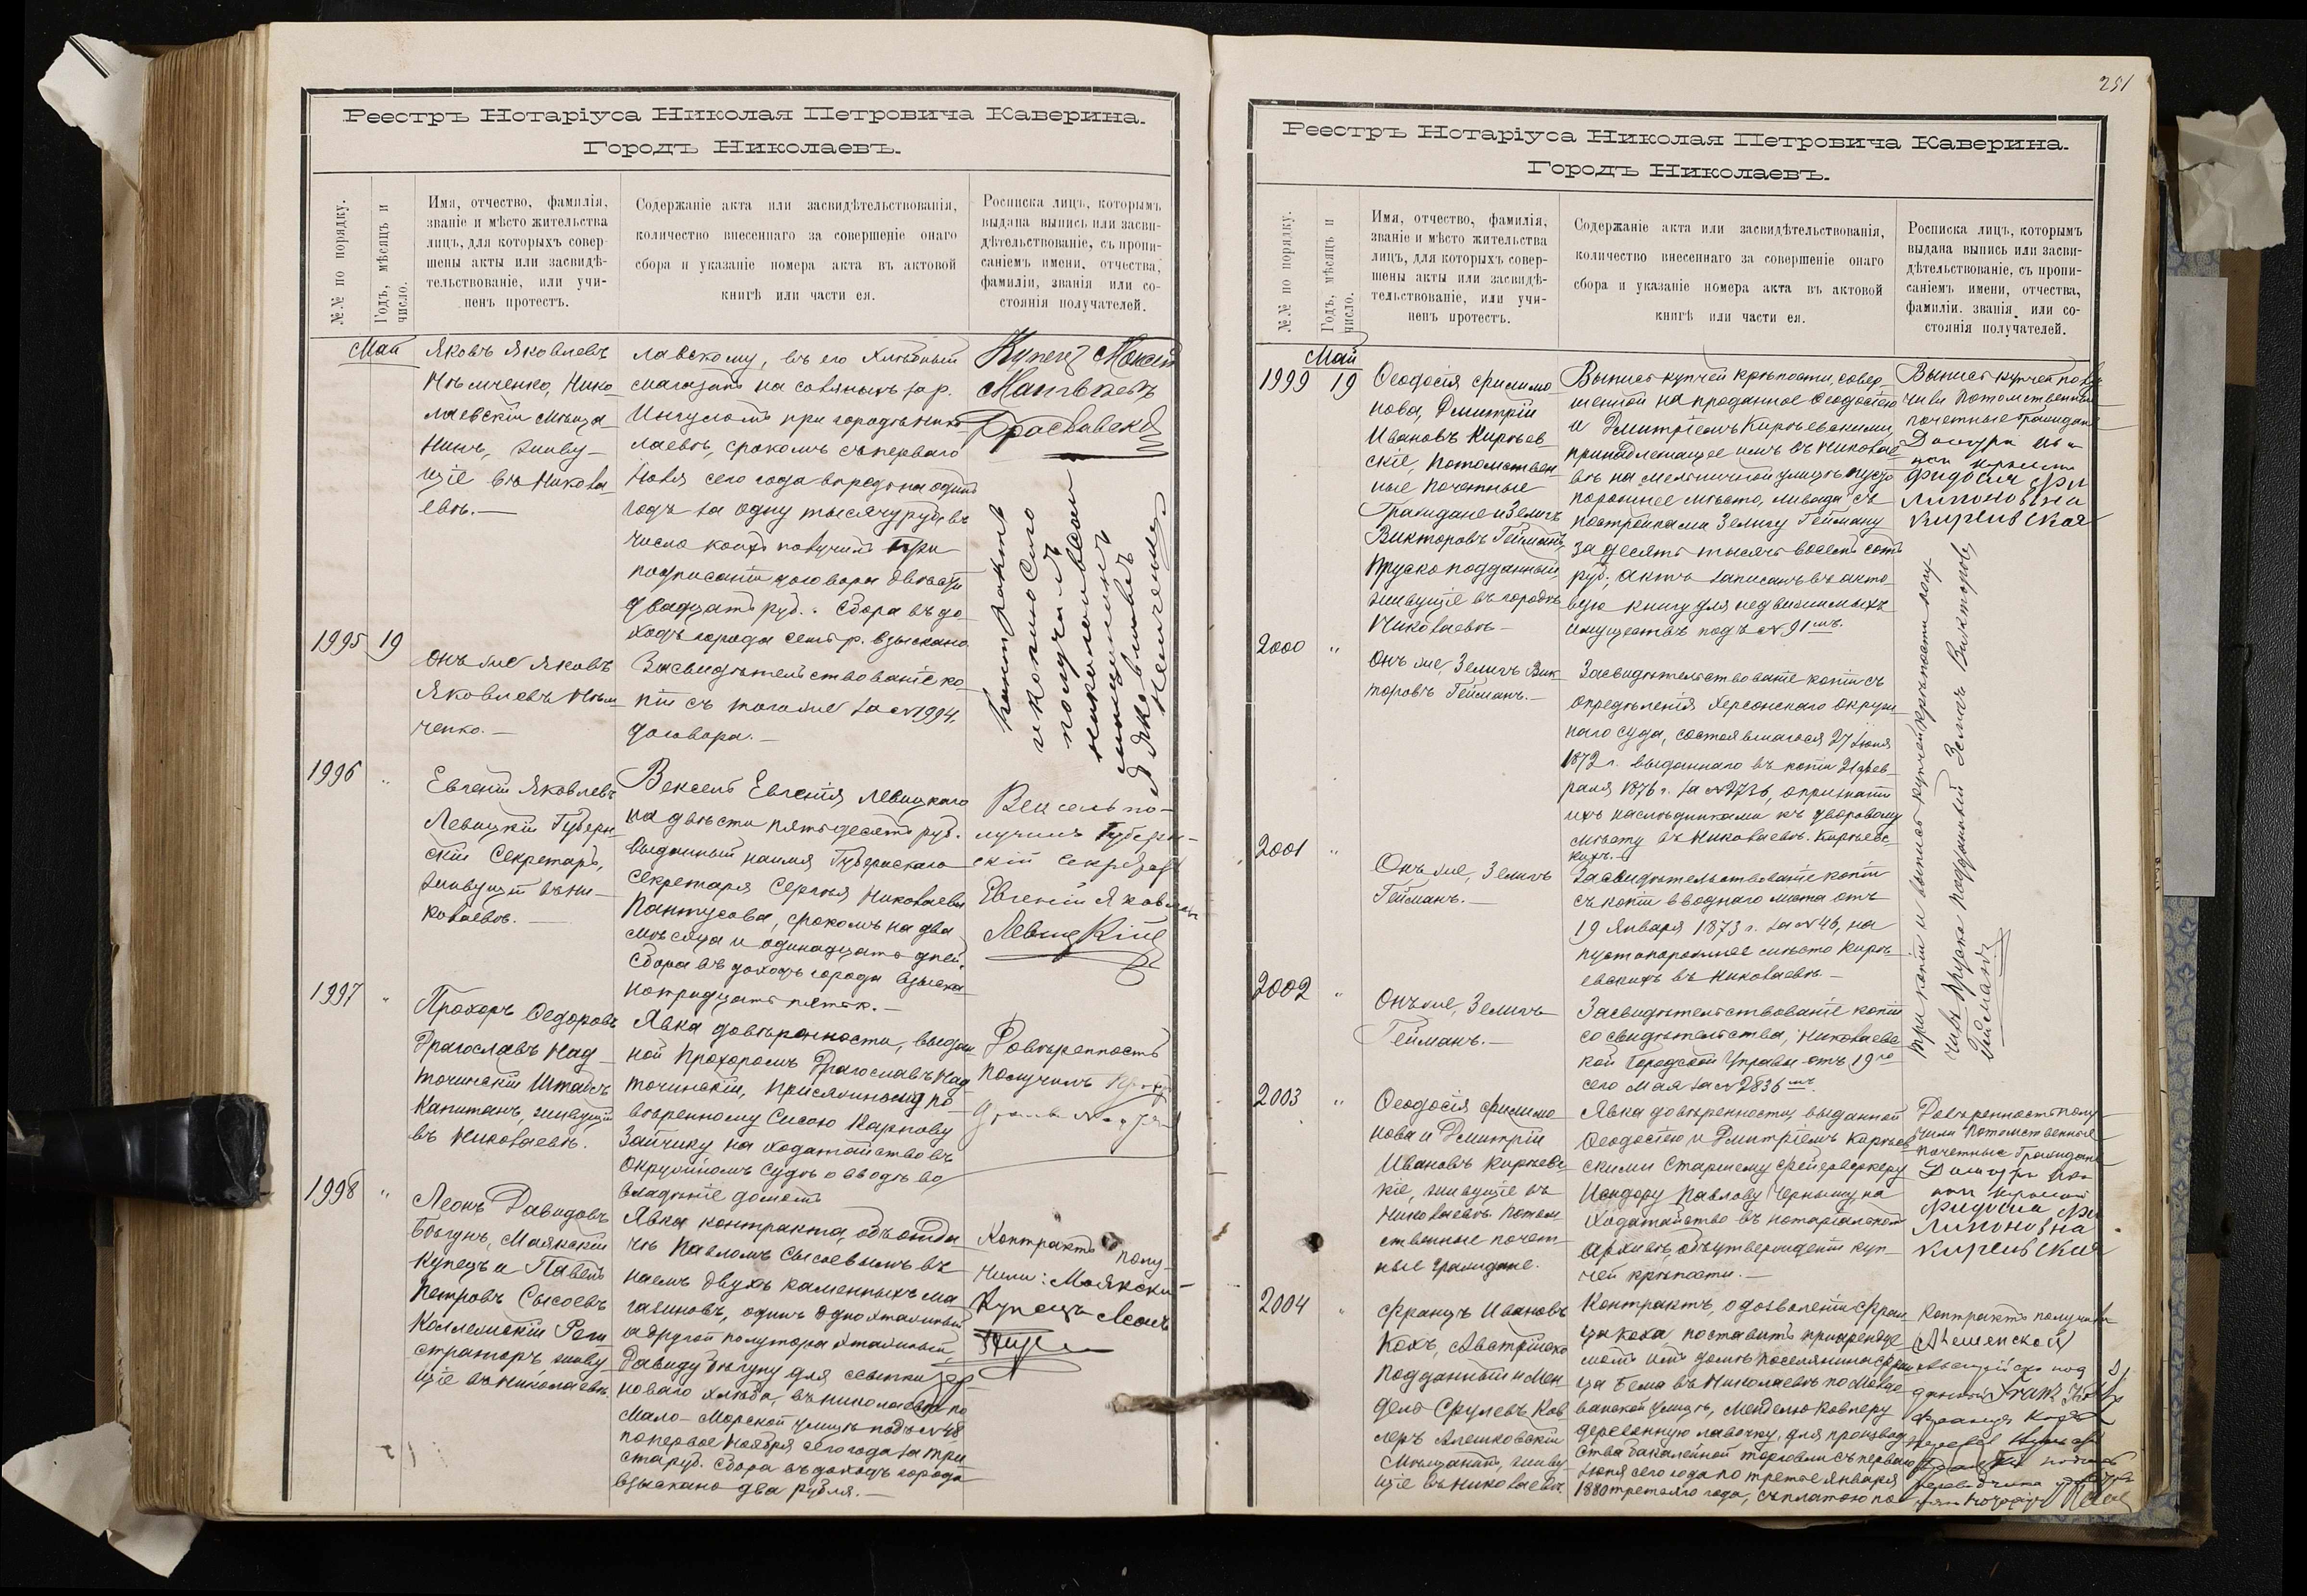 Реестръ Нотаріуса Николая Петровича Каверина.
Городъ Николаевъ.
№№ по порядку.
Годъ, мѣсяцъ и
число.
Имя, отчество, фамилія,
званіе и мѣсто жительства
лицъ, для которыхъ совер-
шены акты или засвидѣ-
тельствованіе, или учи-
ненъ протестъ.
Содержаніе акта или засвидѣтельствованія,
количество внесеннаго за совершеніе онаго
сбора и указаніе номера акта въ актовой
книгѣ или части ея.
Росписка лицъ, которымъ
выдана выпись или засви-
дѣтельствованіе, съ пропи-
саніемъ имени, отчества,
фамиліи, званія или со-
стоянія получателей.
Май
Яковъ Яковлевъ
Нѣмченко, Нико
лаевскій Мѣща
нинъ, живу-
щіе въ Никола
евѣ.-
лавскому, въ его хлѣбный
магазинъ на
Ингуломъ при городѣ Нико
лаевѣ, срокомъ съ перваго
Іюля сего года впредь на одинъ
годъ за одну тысячу руб. въ
число коихъ получилъ при
подписаніи договора двѣсти
двадцать руб. Сбора въ до
ходъ города семь р. взыскано
Купецъ
контрактъ
и копию Сего
получилъ
николаевски
мищининъ
Яковлевъ
Немченко
1995 19
Онъ же Яковъ
Яковлевъ Нѣм
ченко.-
Засвидѣтельствованіе ко-
піи съ того же за №1994,
договора.-
1996 "
Евгеній Яковлевъ
Левицкій Губерн-
скій Секретарь,
живущій въ Ни-
колаевѣ.-
Вексель Евгенія Левицкаго
на двѣсти пятьдесятъ руб.
выданный на имя Губернскаго
Секретаря Сергѣя Николаева
Пантусова, срокомъ на два
мѣсяца и одинадцать дней.
Сбора въ доходъ города взыска
но тридцать пять к.-
Вексель по-
лучилъ Губерн-
скій секретарь
Евгеній Яковлевъ
Левицкій
1997 "
Прохоръ Ѳедоровъ
Драгославъ Над-
точинскій Штабсъ
Капитанъ, живущій
въ Николаевѣ.
Явка довѣренности, выдан
ной Прохоромъ Драгославъ Над
точинскій, Присяжному по
вѣренному Сысою Карпову
Зайчику на ходатайство въ
Окружномъ Судѣ о вводѣ во
владѣніе домомъ
Довѣренность
получилъ
1998 "
Леонъ Давидовъ
Бѣгунъ, Маякскій
Купецъ и Павелъ
Петровъ Сысоевъ
Коллежскій Реги
страторъ, живу
щіе въ Николаевѣ.
Явка контракта, объ отда
чѣ Павломъ Сысоевымъ въ
наемъ двухъ каменныхъ ма
газиновъ, одинъ одноэтажный
а другой полутора этажный,
Давиду Бѣгуну для ссыпки зер-
новаго хлѣба, въ Николаевѣ по
Мало-Морской улицѣ подъ №48
по первое Ноября сего года за три
ста руб. Сбора въ доходъ города
взыскано два рубля.-
Контрактъ полу-
чили: Маякски
Купецъ Леонъ
251
Реестръ Нотаріуса Николая Петровича Каверина.
Городъ Николаевъ.
№№ по порядку.
Годъ, мѣсяцъ и
число.
Имя, отчество, фамилія,
званіе и мѣсто жительства
лицъ, для которыхъ совер-
шены акты или засвидѣ-
тельствованіе, или учи-
ненъ протестъ.
Содержаніе акта или засвидѣтельствованія,
количество внесеннаго за совершеніе онаго
сбора и указаніе номера акта въ актовой
книгѣ или части ея.
Росписка лицъ, которымъ
выдана выпись или засви-
дѣтельствованіе, съ пропи-
саніемъ имени, отчества,
фамиліи. званія или со-
стоянія получателей.
Май
1999 19
Ѳеодосія Филимо
нова, Дмитрій
Ивановъ Кирѣев
скіе, Потомствен
ные Почетные
Граждане и Зелигъ
Викторовъ Гейманъ,
Прускоподданный,
живущіе въ городѣ
Николаевѣ-
Выпись купчей крѣпости, совер-
шенной на проданное Ѳеодосіею
и Дмитріемъ Кирѣевскими,
принадлежащее имъ въ Николае-
вѣ на Мельничной улицѣ пусто
порожнее мѣсто, съ
постройками Зелигу Гейману
за десять тысячъ восемь сотъ
руб., актъ записанъ въ акто-
вую книгу для недвижимыхъ
имуществъ подъ №91мъ.
Выпись купчей полу
чили Потомственные
почетные граждане
Фидосия Фи
лимоновна
Киреивская
2000 "
Онъ же, Зелигъ Вик
торовъ Гейманъ.-
Засвидѣтельствованіе копіи съ
опредѣленія Херсонскаго Окруж
наго суда, состоявшагося 27 Іюня
1872 г. выданнаго въ копіи 21 Фев-
раля 1876 г. за №2736, о признаніи
ихъ наслѣдниками къ дворовому
мѣсту въ Николаевѣ. Кирѣевс
кихъ.-
2001 "
Онъ же, Зелигъ
Гейманъ.-
Засвидѣтельствованіе копіи
съ копіи вводнаго листа отъ
19 Января 1873 г. за №46, на
пустопорожнее мѣсто Кирѣ
евскихъ въ Николаевѣ.-
2002 "
Онъ же, Зелигъ
Гейманъ.-
Засвидѣтельствованіе копіи
со свидѣтельства, Николаевс
кой Городской Управы отъ 19го
сего Мая за №2836мъ.
Три копіи и выпись купчей крѣпости полу
чилъ Прускоподданный Зелигъ Викторовъ
Гейманъ
2003 "
Ѳеодосія Филимо
нова и Дмитрій
Ивановъ Кирѣевс
кіе, живущіе въ
Николаевѣ. Потом
ственные почет-
ные граждане.
Явка довѣренности, выданной
Ѳеодосіею и Дмитріемъ Кирѣев
скими Старшему Фейерверкеру
Исидору Павлову Черныму на
ходатайство въ нотаріальномъ
архивѣ, объ утвержденіи куп-
чей крѣпости.-
Довѣренность полу
чили Потомственные
почетные граждане
Фидосия Фи
лимоновна
Киреивская
2004 "
Францъ Ивановъ
Кохъ, Австрійско
подданный и Мен
дель Срулевъ Ков
леръ Алешковскій
Мѣщанинъ, живу
щіе въ Николаевѣ
Контрактъ, о дозволеніи Фран
цъ Коха, поставить при арендуе
момъ имъ домѣ поселянина Фран
ца Бема въ Николаевѣ по Молдо
ванской улицѣ, Менделю Ковлеру
деревянную лавочку, для производ
ства бакалейной торговли съ перваго
Іюня сего года по третье Января
1880 третьяго года, съ платою по
Контрактъ получили
Franz
Францъ Кохъ